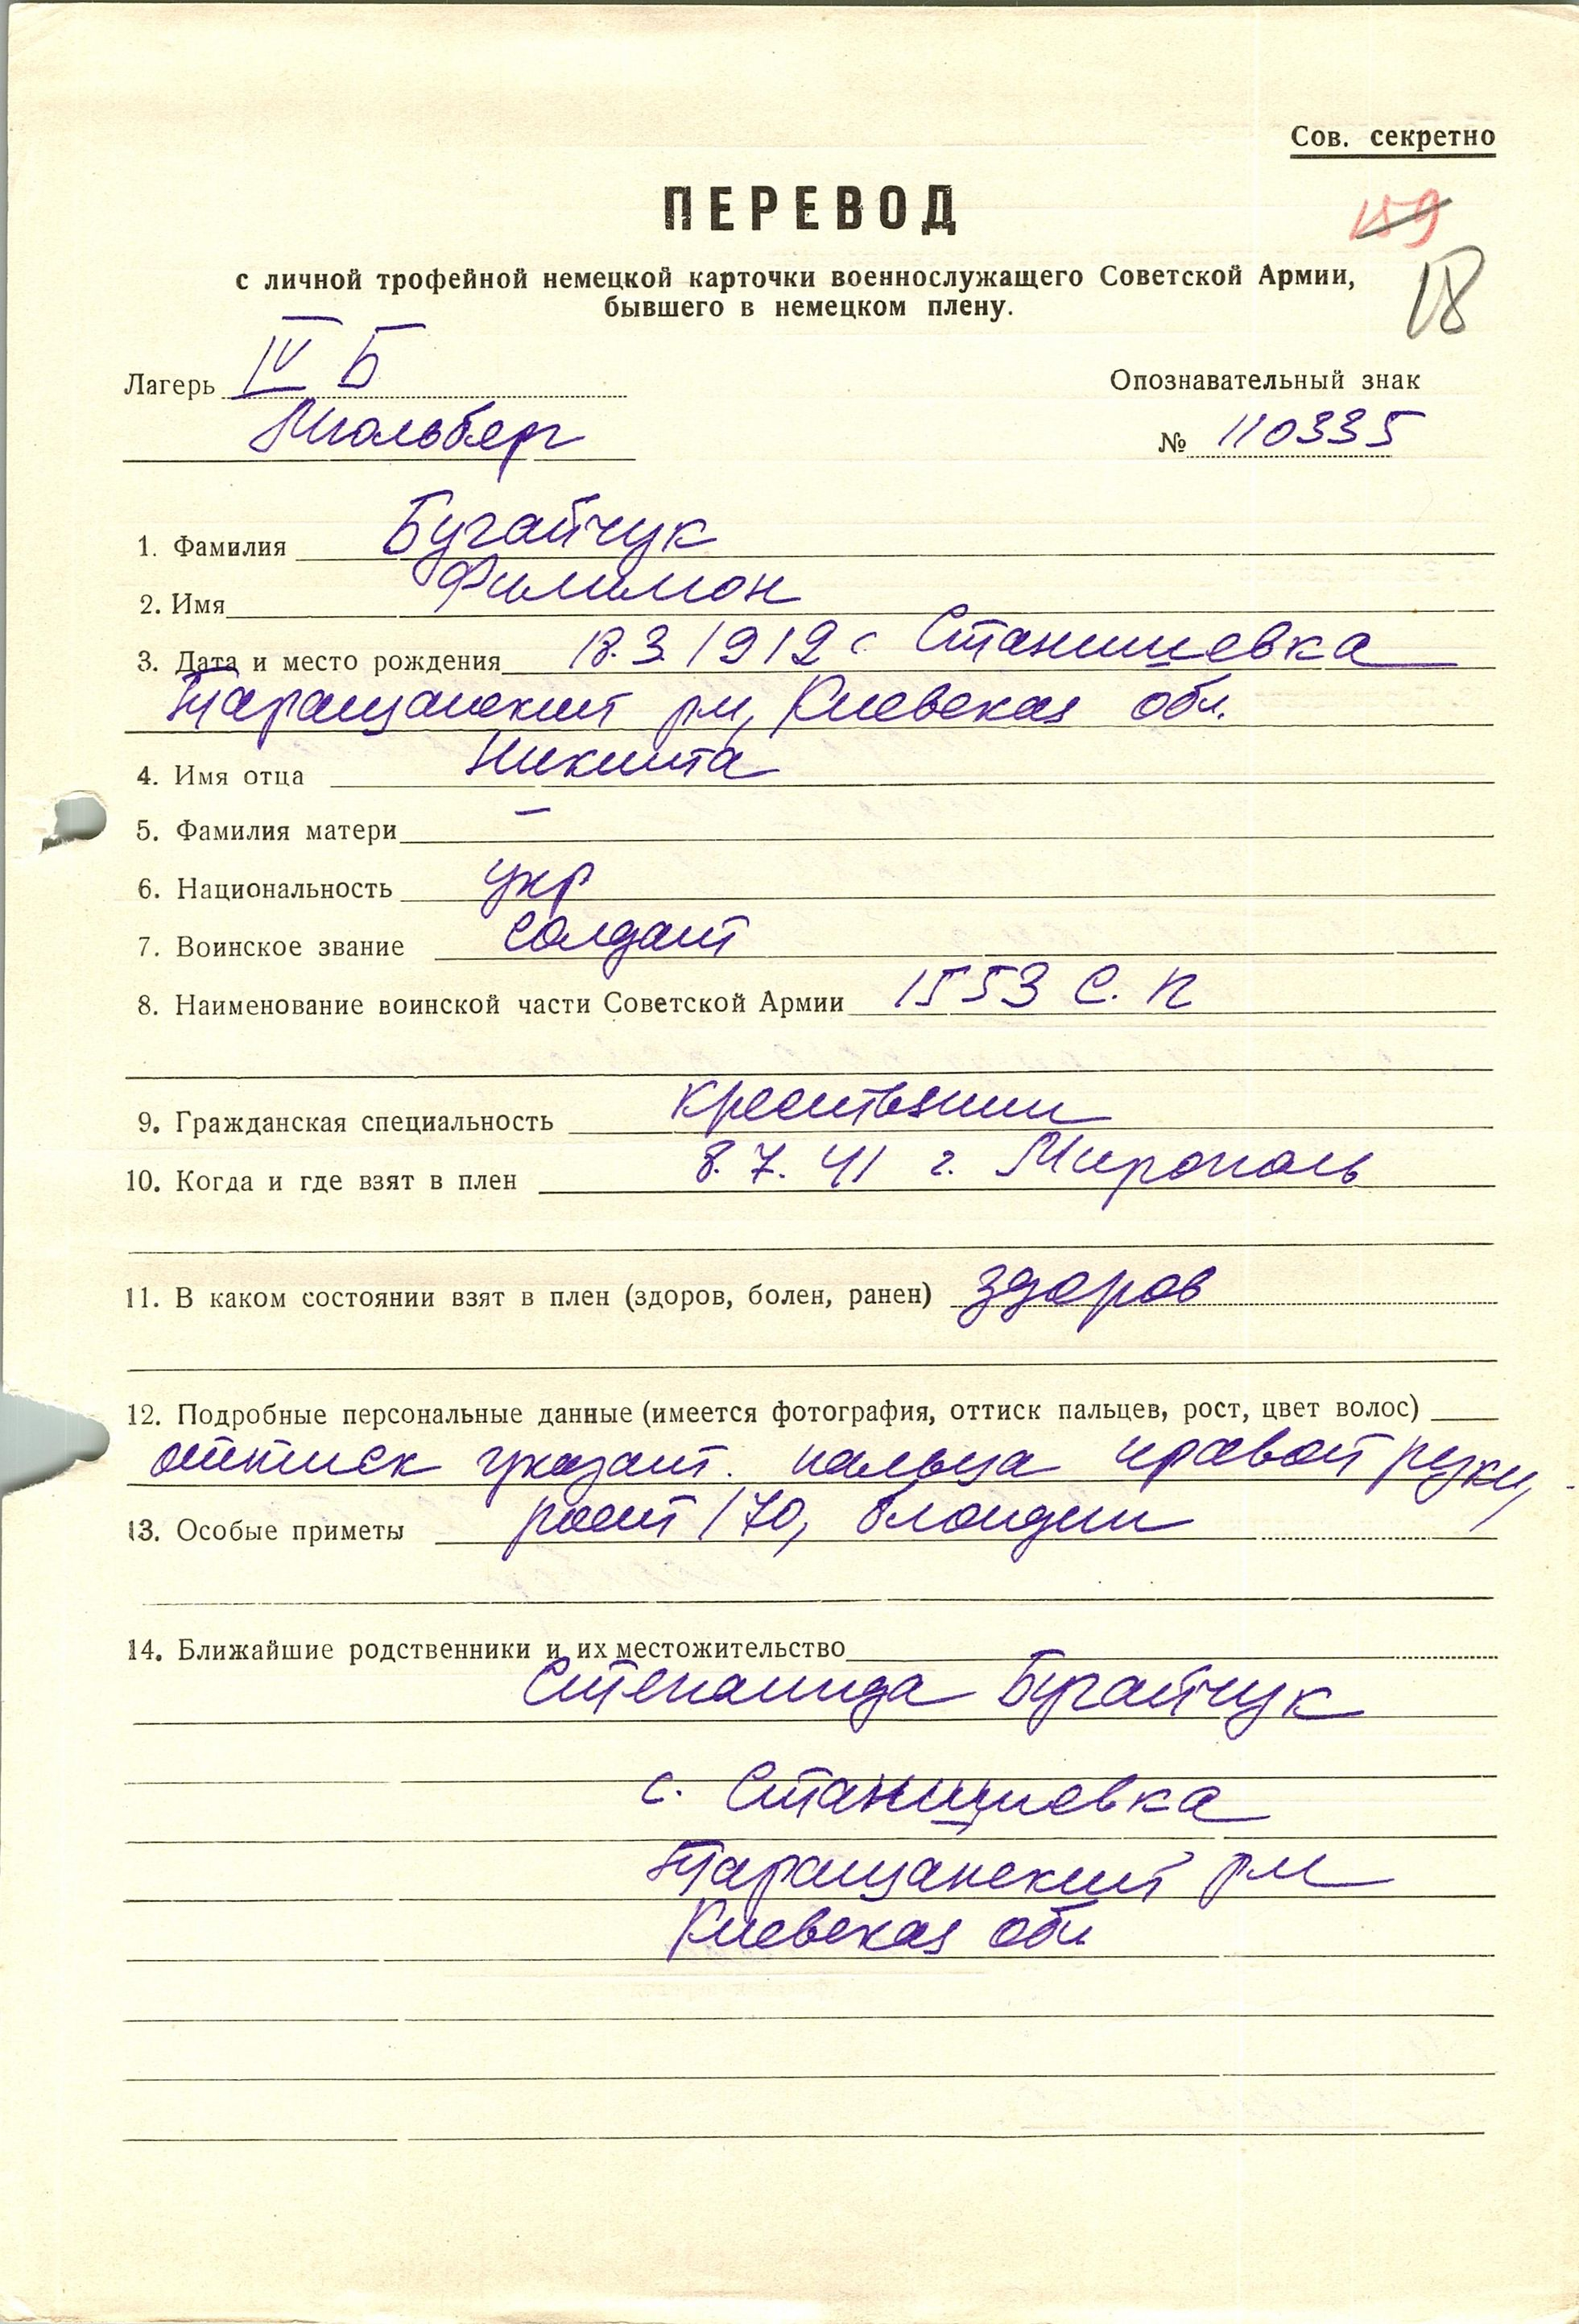 Сов. секретно
ПЕРЕВОД
159
18
с личной трофейной немецкой карточки военнослужащего Советской Армии,
бывшего в немецком плену.
Лагерь IV Б
Опознавательный знак
Мюльберг
№ 110335
1. Фамилия Бугайчук
2. Имя Филимон
3. Дата и место рождения 18.3.1912 с Станишевка
Таращанский рн, Киевская обл.
4. Имя отца Никита
5. Фамилия матери –
6. Национальность укр
7. Воинское звание солдат
8. Наименование воинской части Советской Армии 1553 С. П
9. Гражданская специальность крестьянин
10. Когда и где взят в плен 8.7.41 г. Мирополь
11. В каком состоянии взят в плен (здоров, болен, ранен) здоров
12. Подробные персональные данные (имеется фотография, оттиск пальцев, рост, цвет волос)
оттиск указат. пальца правой руки,
13. Особые приметы рост 170, блондин
14. Ближайшие родственники и их местожительство
Степанида Бугайчук
с. Станишевка
Таращанский рн
Киевская обл